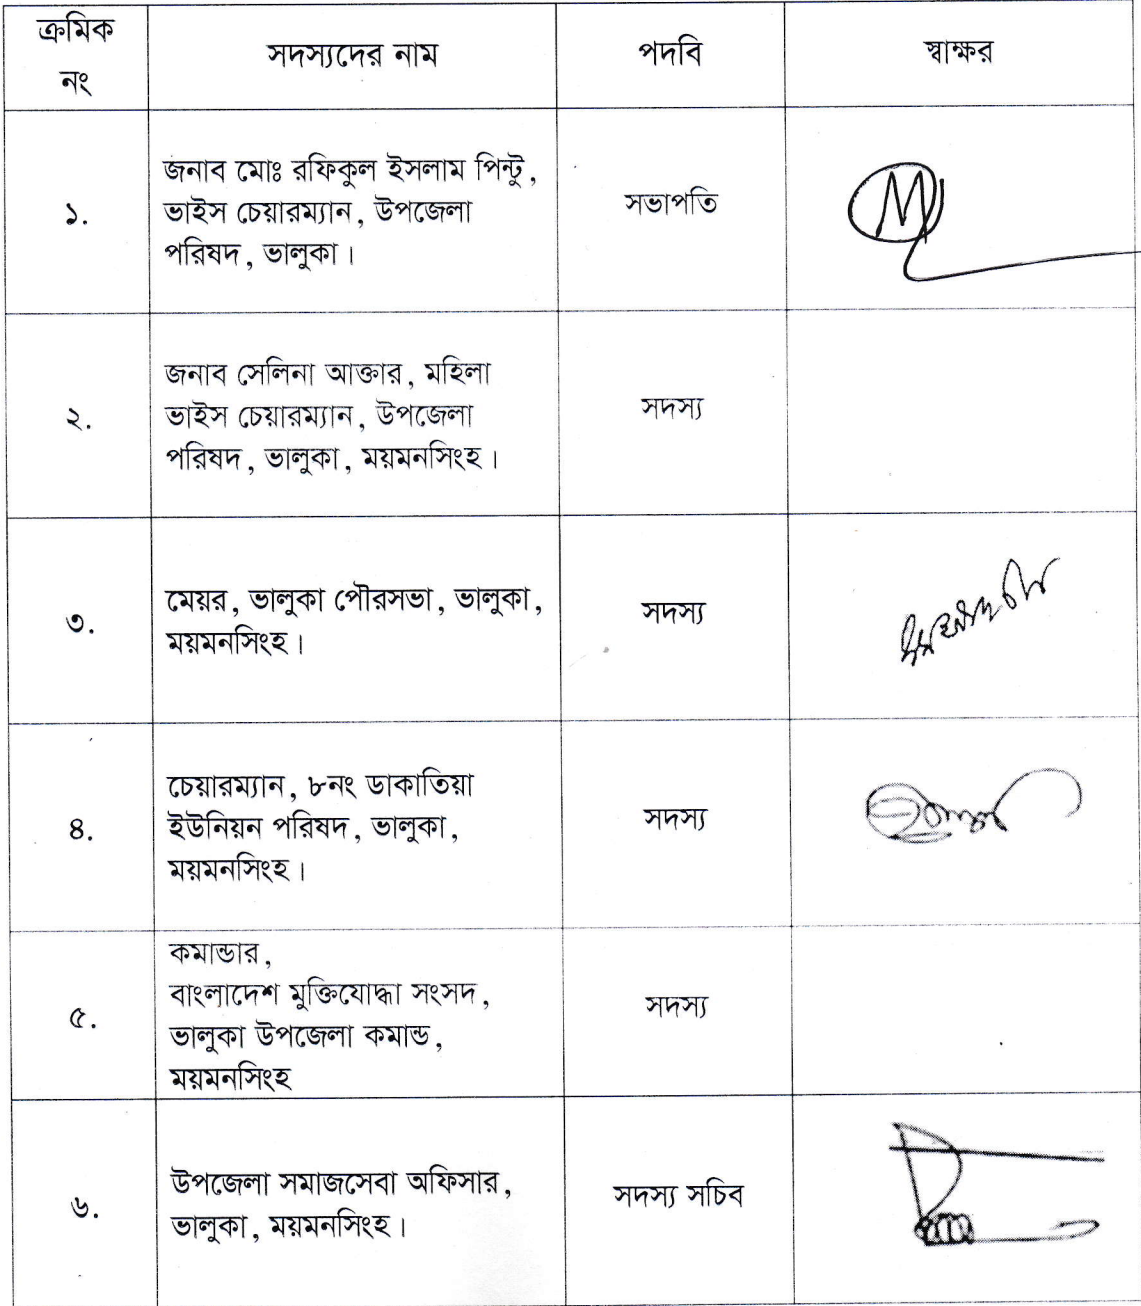 ক্রমিক
নং
সদস্যদের নাম
পদবি
স্বাক্ষর
১.
জনাব মোঃ রফিকুল ইসলাম পিন্টু,
ভাইস চেয়ারম্যান, উপজেলা
পরিষদ, ভালুকা।
সভাপতি
২.
জনাব সেলিনা আক্তার, মহিলা
ভাইস চেয়ারম্যান, উপজেলা
পরিষদ, ভালুকা, ময়মনসিংহ।
সদস্য
৩.
মেয়র, ভালুকা পৌরসভা, ভালুকা,
ময়মনসিংহ।
সদস্য
৪.
চেয়ারম্যান, ৮নং ডাকাতিয়া
ইউনিয়ন পরিষদ, ভালুকা,
ময়মনসিংহ।
সদস্য
৫.
কমান্ডার,
বাংলাদেশ মুক্তিযোদ্ধা সংসদ,
ভালুকা উপজেলা কমান্ড,
ময়মনসিংহ
সদস্য
৬.
উপজেলা সমাজসেবা অফিসার,
ভালুকা, ময়মনসিংহ।
সদস্য সচিব